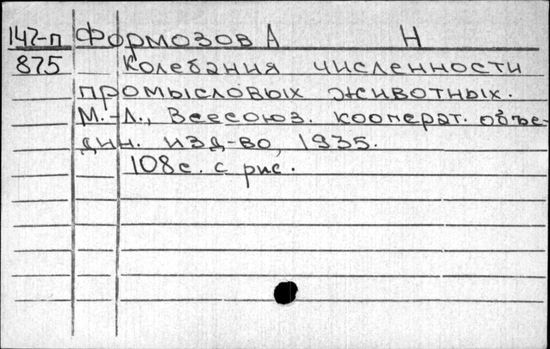 147-п Формозов А Н
875 Колебания численности
промысловых животных.
М.-Л., Всесоюз. кооперат. объе-
дин. изд-во, 1935.
108с. с рис.